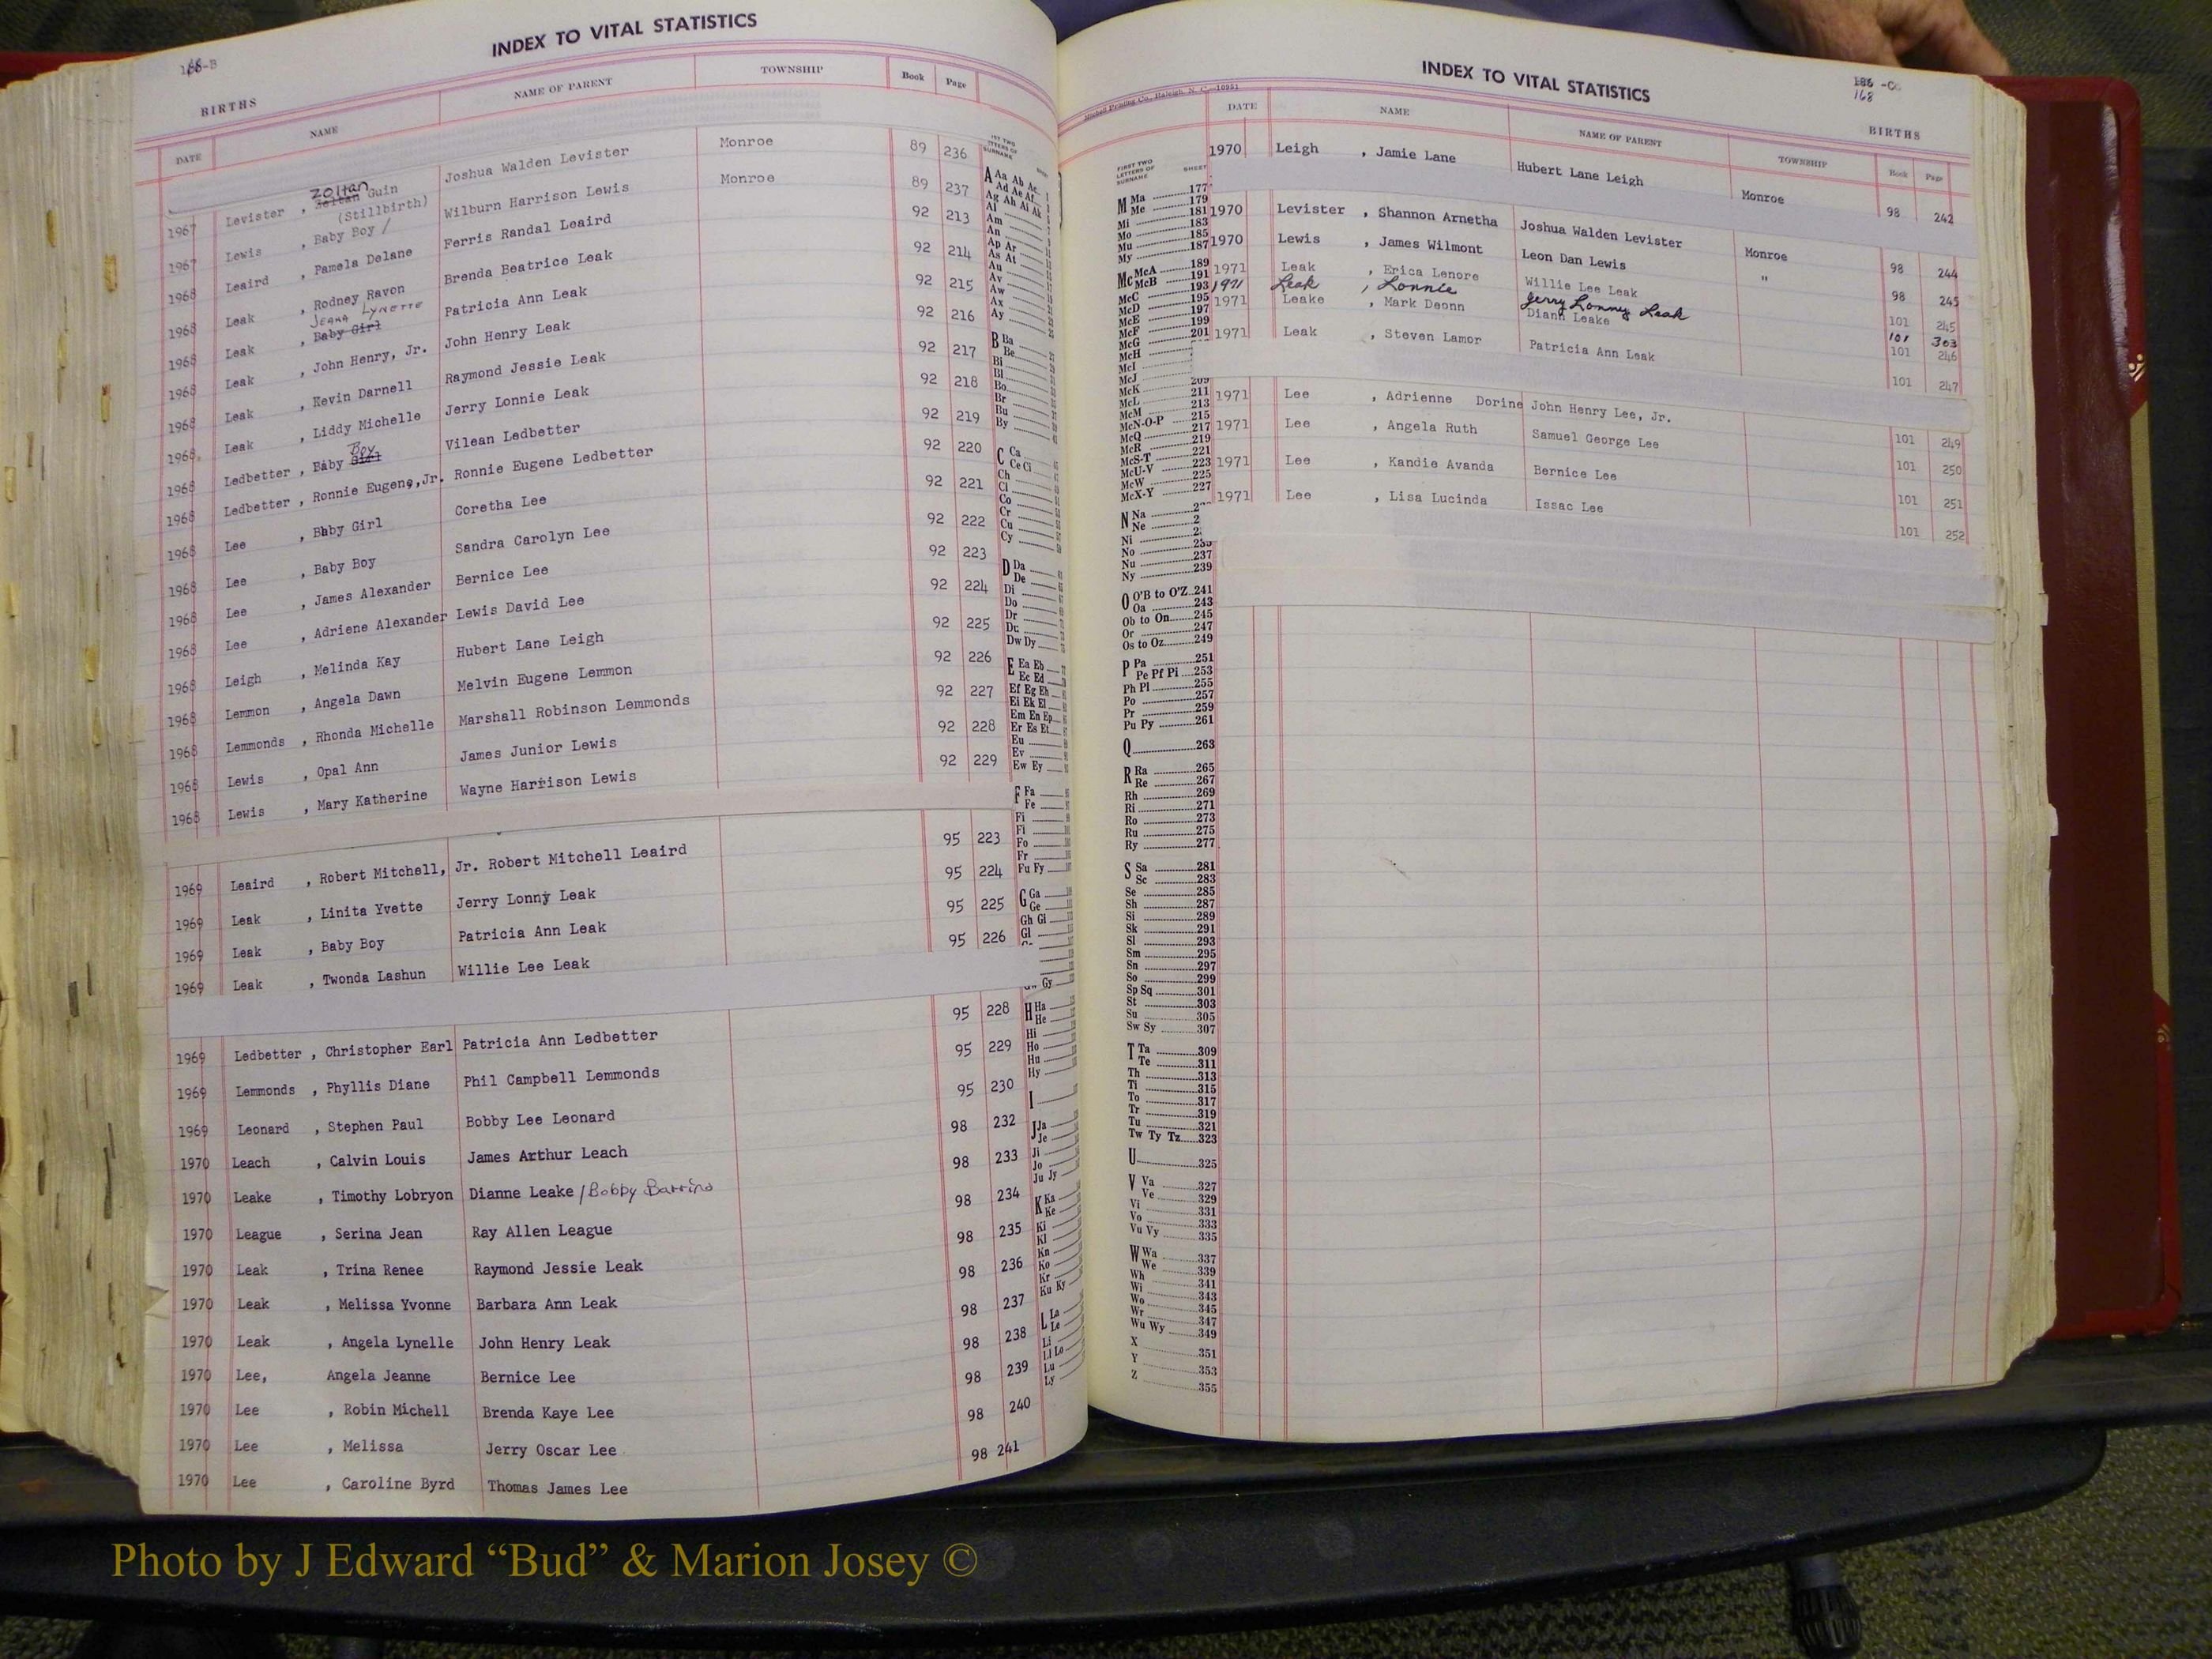 INDEX TO VITAL STATISTICS
BIRTHS
DATE NAME NAME OF PARENT TOWNSHIP Book Page
1967 Levister , Zoltan Guin Joshua Walden Levister Monroe 89 236
1967 Lewis , Baby Boy / (Stillbirth) Wilburn Harrison Lewis Monroe 89 237
1968 Leaird , Pamela Delane Ferris Randal Leaird 92 213
1968 Leak , Rodney Ravon Brenda Beatrice Leak 92 214
1968 Leak , Baby Girl Patricia Ann Leak 92 215
1968 Leak , John Henry, Jr. John Henry Leak 92 216
1968 Leak , Kevin Darnell Raymond Jessie Leak 92 217
1968 Leak , Liddy Michelle Jerry Lonnie Leak 92 218
1968 Ledbetter , Baby Boy Vilean Ledbetter 92 219
1968 Ledbetter , Ronnie Eugene,Jr. Ronnie Eugene Ledbetter 92 220
1968 Lee , Baby Girl Coretha Lee 92 221
1968 Lee , Baby Boy Sandra Carolyn Lee 92 222
1968 Lee , James Alexander Bernice Lee 92 223
1968 Lee , Adriene Alexander Lewis David Lee 92 224
1968 Leigh , Melinda Kay Hubert Lane Leigh 92 225
1968 Lemmon , Angela Dawn Melvin Eugene Lemmon 92 226
1968 Lemmonds , Rhonda Michelle Marshall Robinson Lemmonds 92 227
1968 Lewis , Opal Ann James Junior Lewis 92 228
1968 Lewis , Mary Katherine Wayne Harrison Lewis 92 229
1969 Leaird , Robert Mitchell, Jr. Robert Mitchell Leaird 95 223
1969 Leak , Linita Yvette Jerry Lonny Leak 95 224
1969 Leak , Baby Boy Patricia Ann Leak 95 225
1969 Leak , Twonda Lashun Willie Lee Leak 95 226
1969 Ledbetter , Christopher Earl Patricia Ann Ledbetter 95 228
1969 Lemmonds , Phyllis Diane Phil Campbell Lemmonds 95 229
1969 Leonard , Stephen Paul Bobby Lee Leonard 95 230
1970 Leach , Calvin Louis James Arthur Leach 98 232
1970 Leake , Timothy Lobryon Dianne Leake / Bobby Barrino 98 233
1970 League , Serina Jean Ray Allen League 98 234
1970 Leak , Trina Renee Raymond Jessie Leak 98 235
1970 Leak , Melissa Yvonne Barbara Ann Leak 98 236
1970 Leak , Angela Lynelle John Henry Leak 98 237
1970 Lee, Angela Jeanne Bernice Lee 98 238
1970 Lee , Robin Michell Brenda Kaye Lee 98 239
1970 Lee , Melissa Jerry Oscar Lee 98 240
1970 Lee , Caroline Byrd Thomas James Lee 98 241
INDEX TO VITAL STATISTICS
168
BIRTHS
DATE NAME NAME OF PARENT TOWNSHIP Book Page
1970 Leigh , Jamie Lane Hubert Lane Leigh Monroe 98 242
1970 Levister , Shannon Arnetha Joshua Walden Levister Monroe 98 244
1970 Lewis , James Wilmont Leon Dan Lewis " 98 245
1971 Leak , Erica Lenore Willie Lee Leak 101 245
1971 Leak , Lonnie Jerry Lonny Leak 101 303
1971 Leake , Mark Deonn Diann Leake 101 246
1971 Leak , Steven Lamor Patricia Ann Leak 101 247
1971 Lee , Adrienne Dorine John Henry Lee, Jr. 101 249
1971 Lee , Angela Ruth Samuel George Lee 101 250
1971 Lee , Kandie Avanda Bernice Lee 101 251
1971 Lee , Lisa Lucinda Issac Lee 101 252
FIRST TWO LETTERS OF SURNAME SHEET
M Ma 177
Me 179
Mi 181
Mo 183
Mu 185
My 187
Mc McA 189
McB 191
McC 193
McD 195
McE 197
McF 199
McG 201
McH
McI
McJ
McK 209
McL 211
McM 213
McN-O-P 215
McQ 217
McR 219
McS-T 221
McU-V 223
McW 225
McX-Y 227
N Na
Ne
Ni
No 235
Nu 237
Ny 239
O O'B to O'Z 241
Oa 243
Ob to On 245
Or 247
Os to Oz 249
P Pa 251
Pe Pf Pi 253
Ph Pl 255
Po 257
Pr 259
Pu Py 261
Q 263
R Ra 265
Re 267
Rh 269
Ri 271
Ro 273
Ru 275
Ry 277
S Sa 281
Sc 283
Se 285
Sh 287
Si 289
Sk 291
Sl 293
Sm 295
Sn 297
So 299
Sp Sq 301
St 303
Su 305
Sw Sy 307
T Ta 309
Te 311
Th 313
Ti 315
To 317
Tr 319
Tu 321
Tw Ty Tz 323
U 325
V Va 327
Ve 329
Vi 331
Vo 333
Vu Vy 335
W Wa 337
We 339
Wh 341
Wi 343
Wo 345
Wr 347
Wu Wy 349
X 351
Y 353
Z 355
Photo by J Edward “Bud” & Marion Josey ©